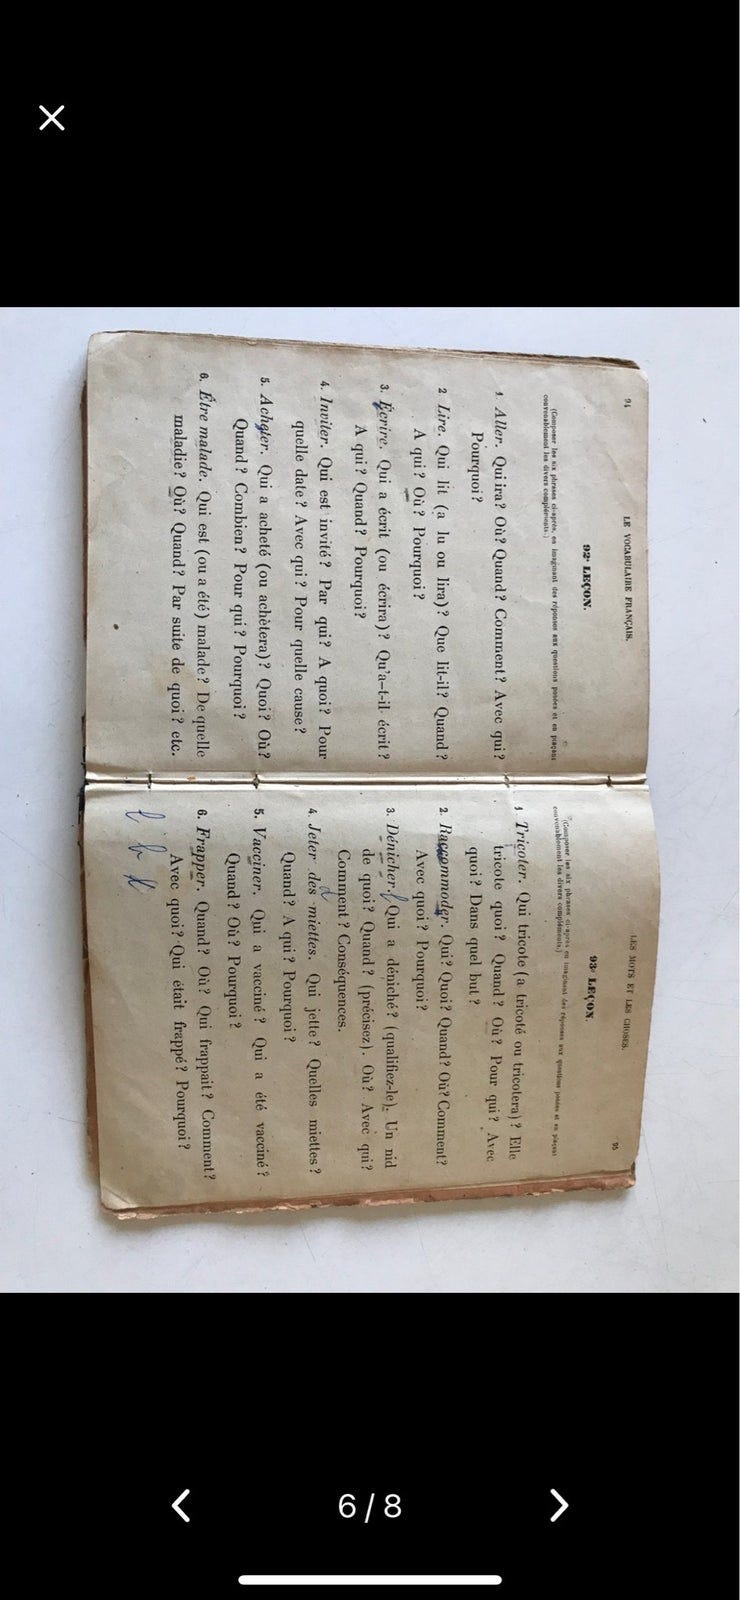 94
LE VOCABULAIRE FRANÇAIS.
92e LEÇON.
(Composer les six phrases ci-après, en imaginant des réponses aux questions posées et en plaçant
convenablement les divers compléments.)
1. Aller. Qui ira? Où? Quand? Comment? Avec qui?
Pourquoi?
2 Lire. Qui lit (a lu ou lira)? Que lit-il? Quand?
A qui? Où? Pourquoi?
3. Écrire. Qui a écrit (ou écrira)? Qu'a-t-il écrit?
A qui? Quand? Pourquoi?
4. Inviter. Qui est invité? Par qui? A quoi? Pour
quelle date? Avec qui? Pour quelle cause?
5. Acheter. Qui a acheté (ou achètera)? Quoi? Où?
Quand? Combien? Pour qui? Pourquoi?
6. Être malade. Qui est (ou a été) malade? De quelle
maladie? Où? Quand? Par suite de quoi? etc.
LES MOTS ET LES CHOSES.
95
93e LEÇON.
(Composer les six phrases ci-après en imaginant des réponses aux questions posées et en plaçant
convenablement les divers compléments.)
1 Tricoter. Qui tricote (a tricoté ou tricotera)? Elle
tricote quoi? Quand? Où? Pour qui? Avec
quoi? Dans quel but?
2. Raccommoder. Qui? Quoi? Quand? Où? Comment?
Avec quoi? Pourquoi?
3. Dénicher. Qui a déniché? (qualifiez-le). Un nid
de quoi? Quand? (précisez). Où? Avec qui?
Comment? Conséquences.
4. Jeter des miettes. Qui jette? Quelles miettes?
Quand? A qui? Pourquoi?
5. Vacciner. Qui a vacciné? Qui a été vacciné?
Quand? Où? Pourquoi?
6. Frapper. Quand? Où? Qui frappait? Comment?
Avec quoi? Qui était frappé? Pourquoi?
6 / 8